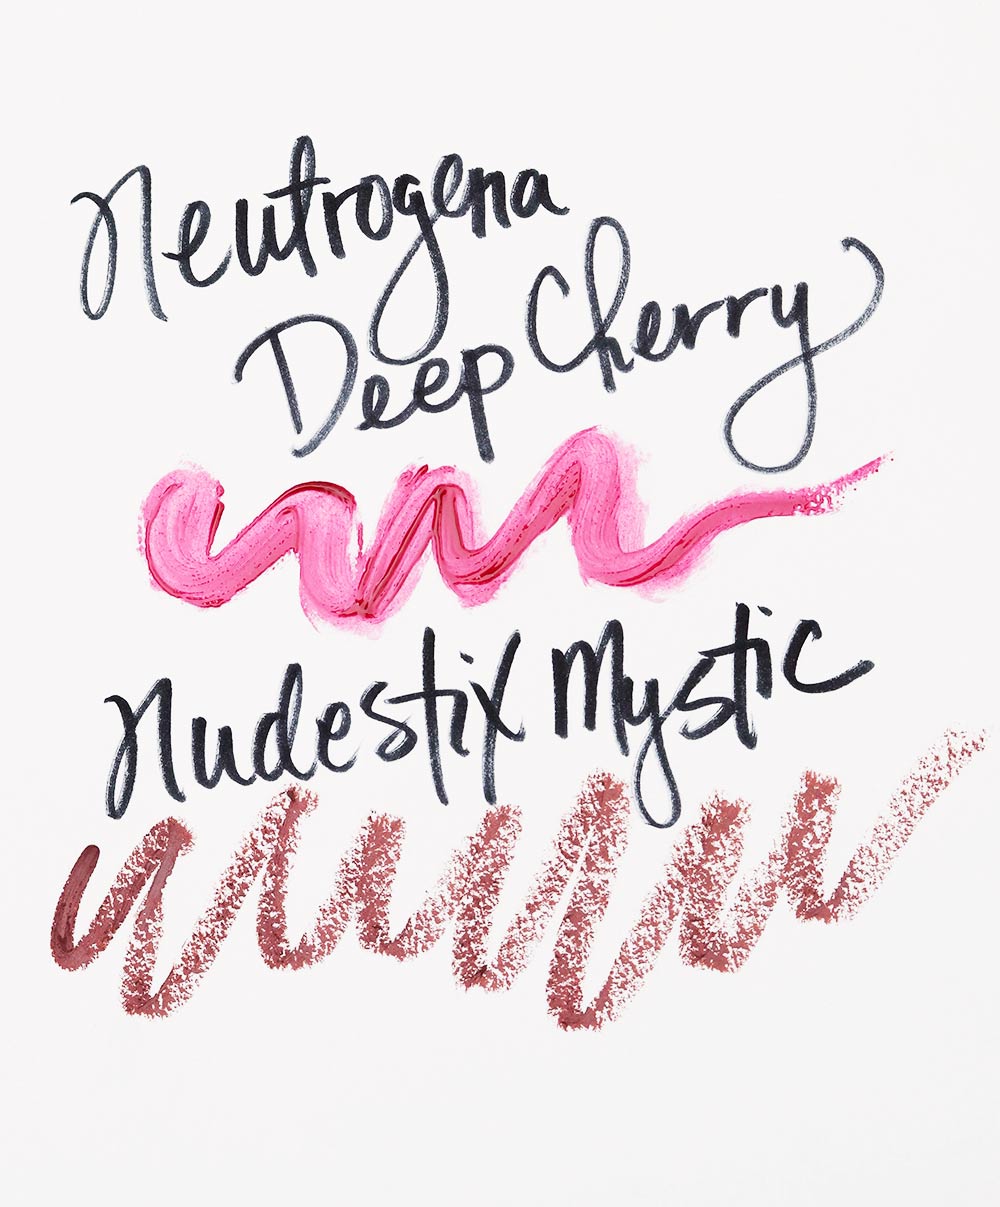 Neutrogena
Deep Cherry
Nudestix Mystic